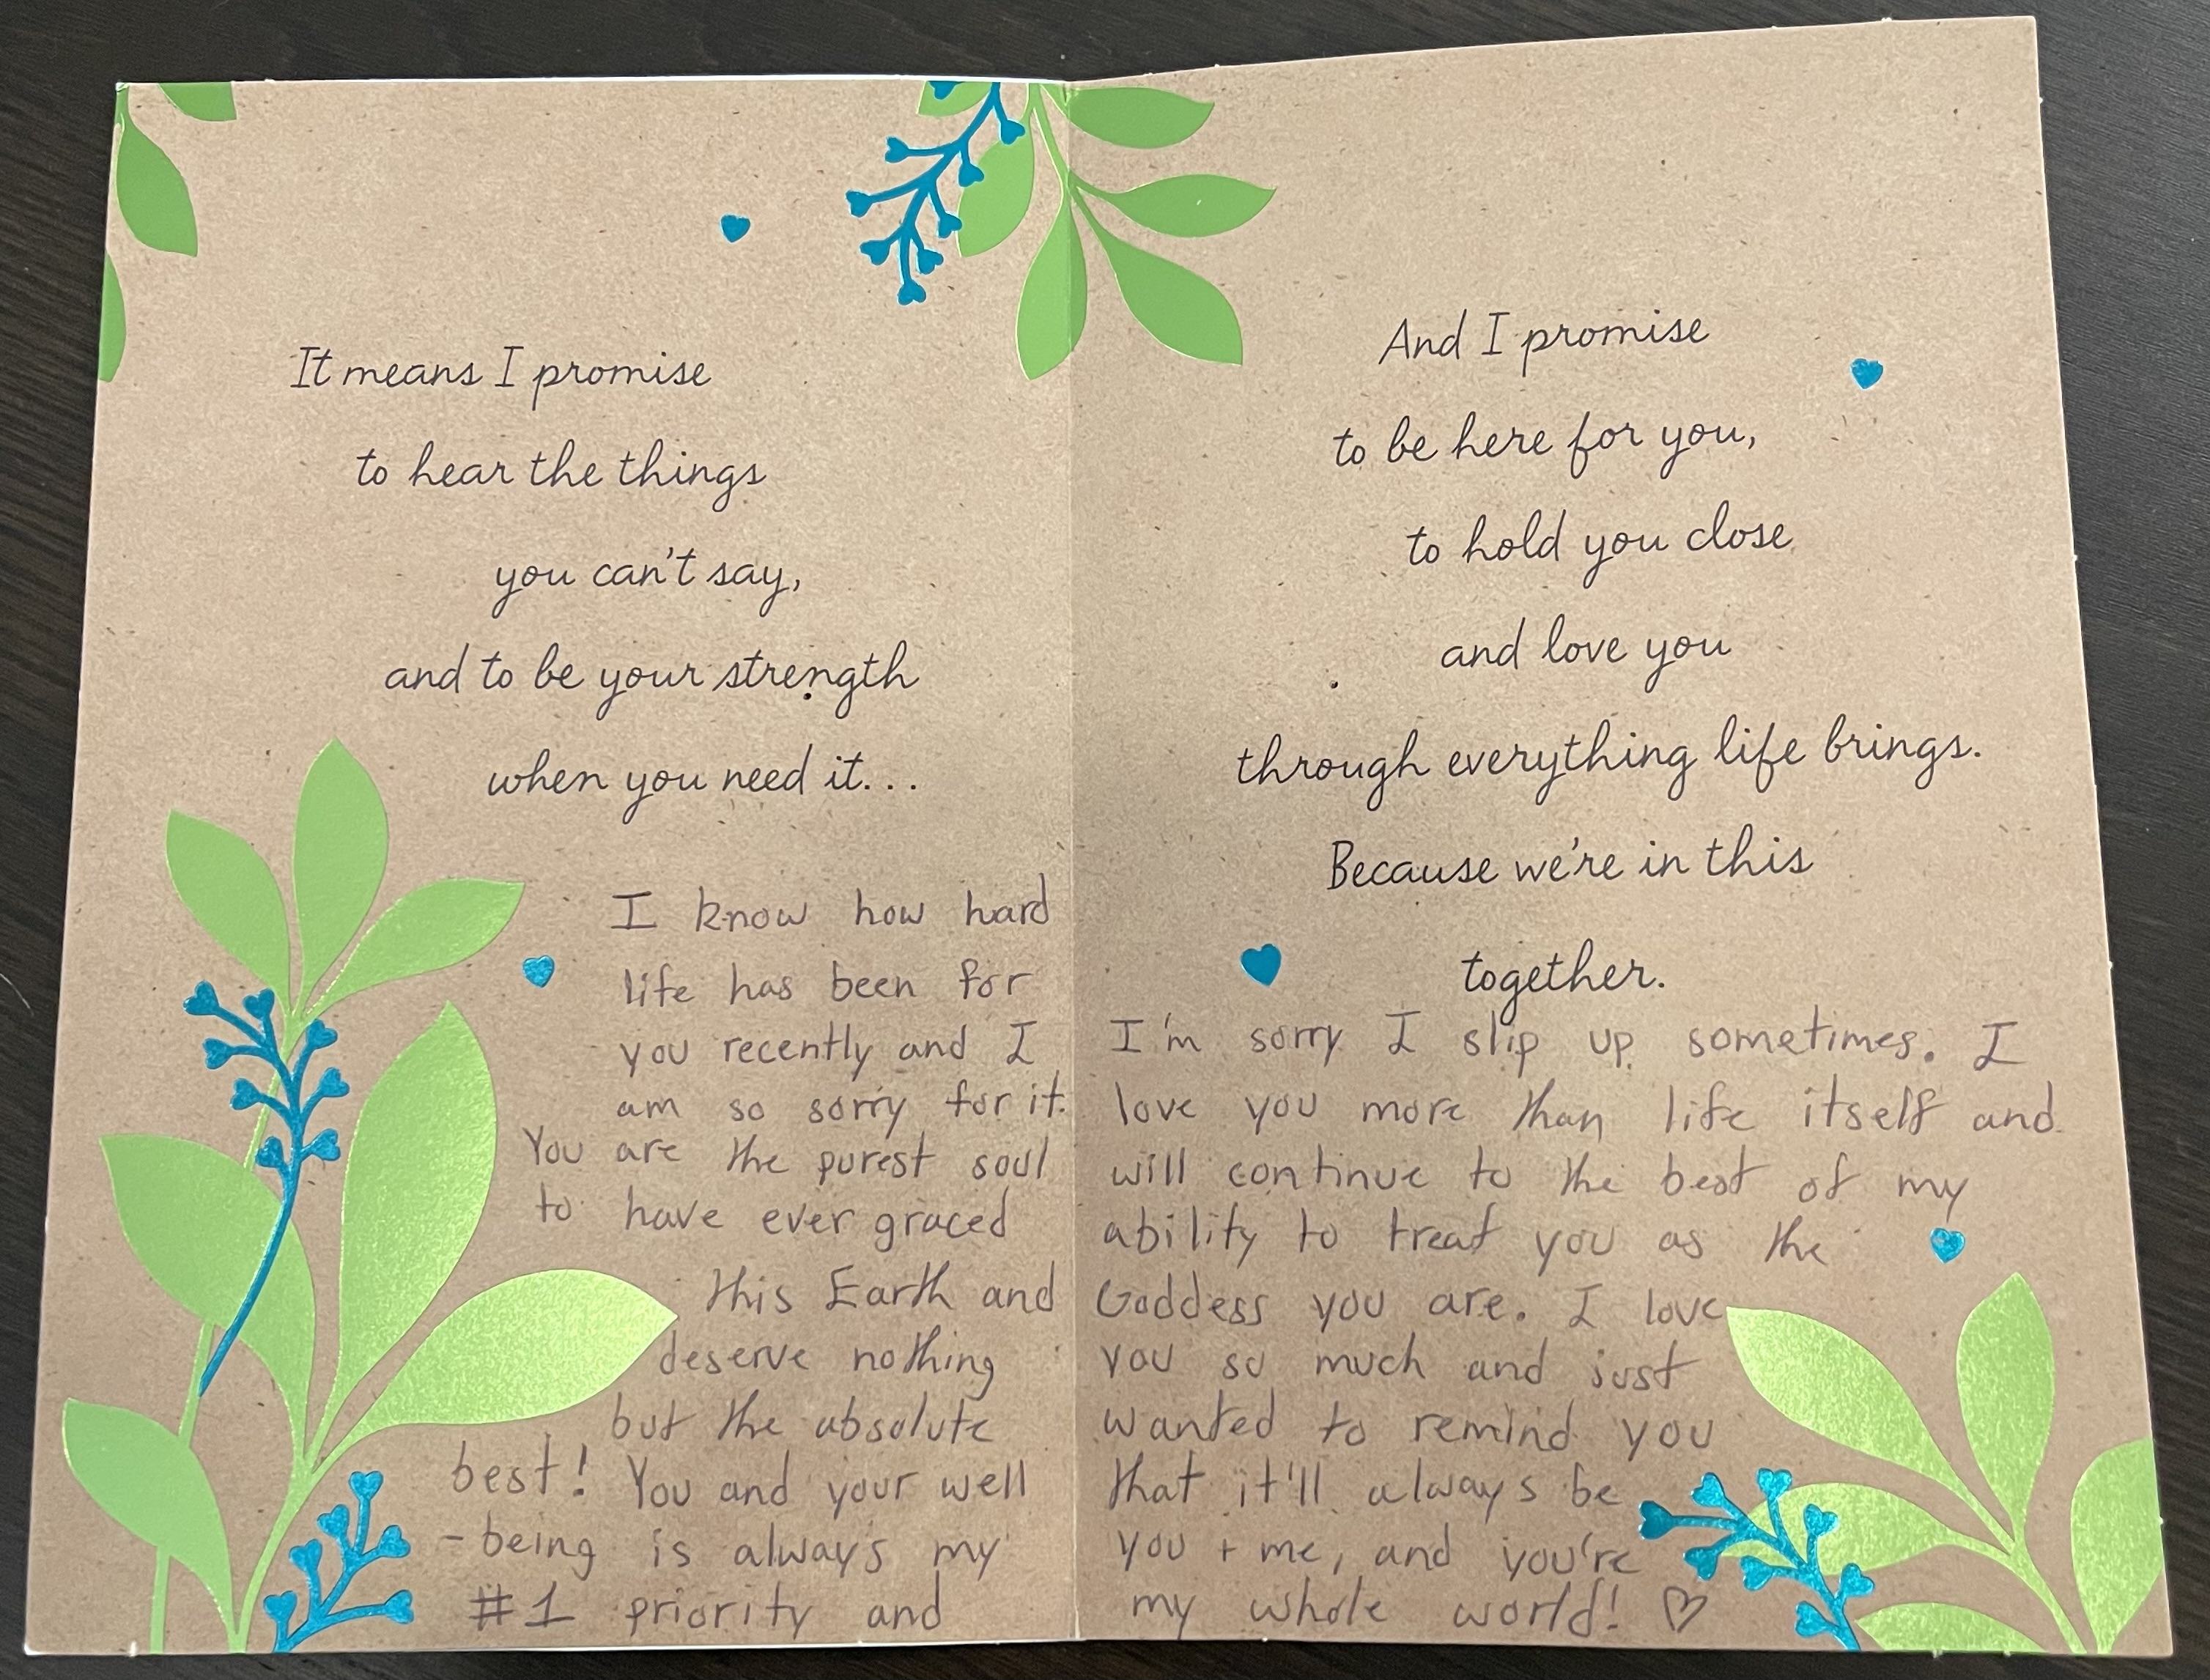 It means I promise
to hear the things
you can't say,
and to be your strength
when you need it...
I know how hard
life has been for
you recently and I
am so sorry for it.
You are the purest soul
to have ever graced
this Earth and
deserve nothing
but the absolute
best! You and your well
-being is always my
#1 priority and
And I promise
to be here for you,
to hold you close
and love you
through everything life brings.
Because we're in this
together.
I'm sorry I slip up sometimes. I
love you more than life itself and
will continue to the best of my
ability to treat you as the
Goddess you are. I love
you so much and just
wanted to remind you
that it'll always be
you + me, and you're
my whole world! ♡